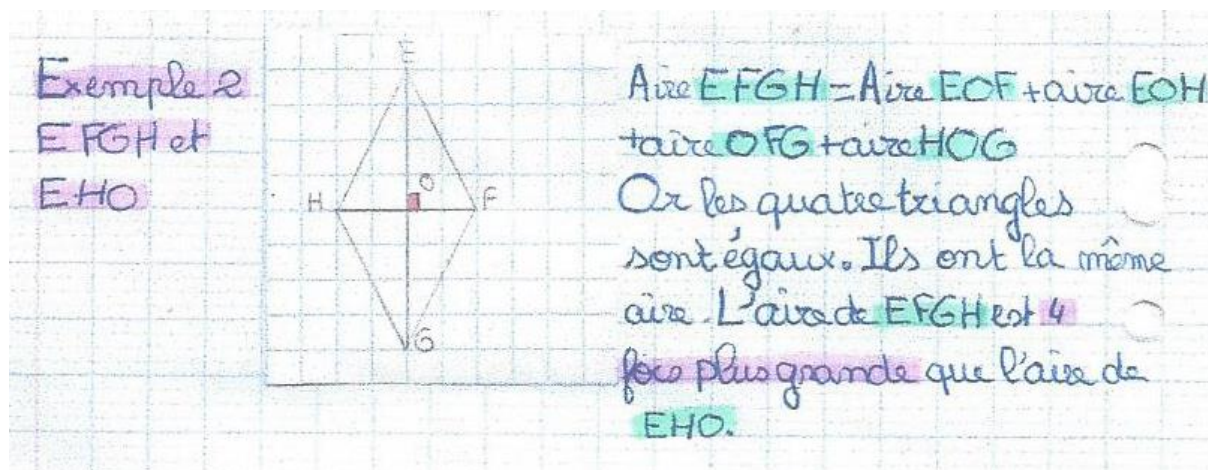 Exemple 2
EFGH et
EHO
E
H
O
F
G
Aire EFGH = Aire EOF + aire EOH
+ aire OFG + aire HOG
Or les quatre triangles
sont égaux. Ils ont la même
aire. L'aire de EFGH est 4
fois plus grande que l'aire de
EHO.